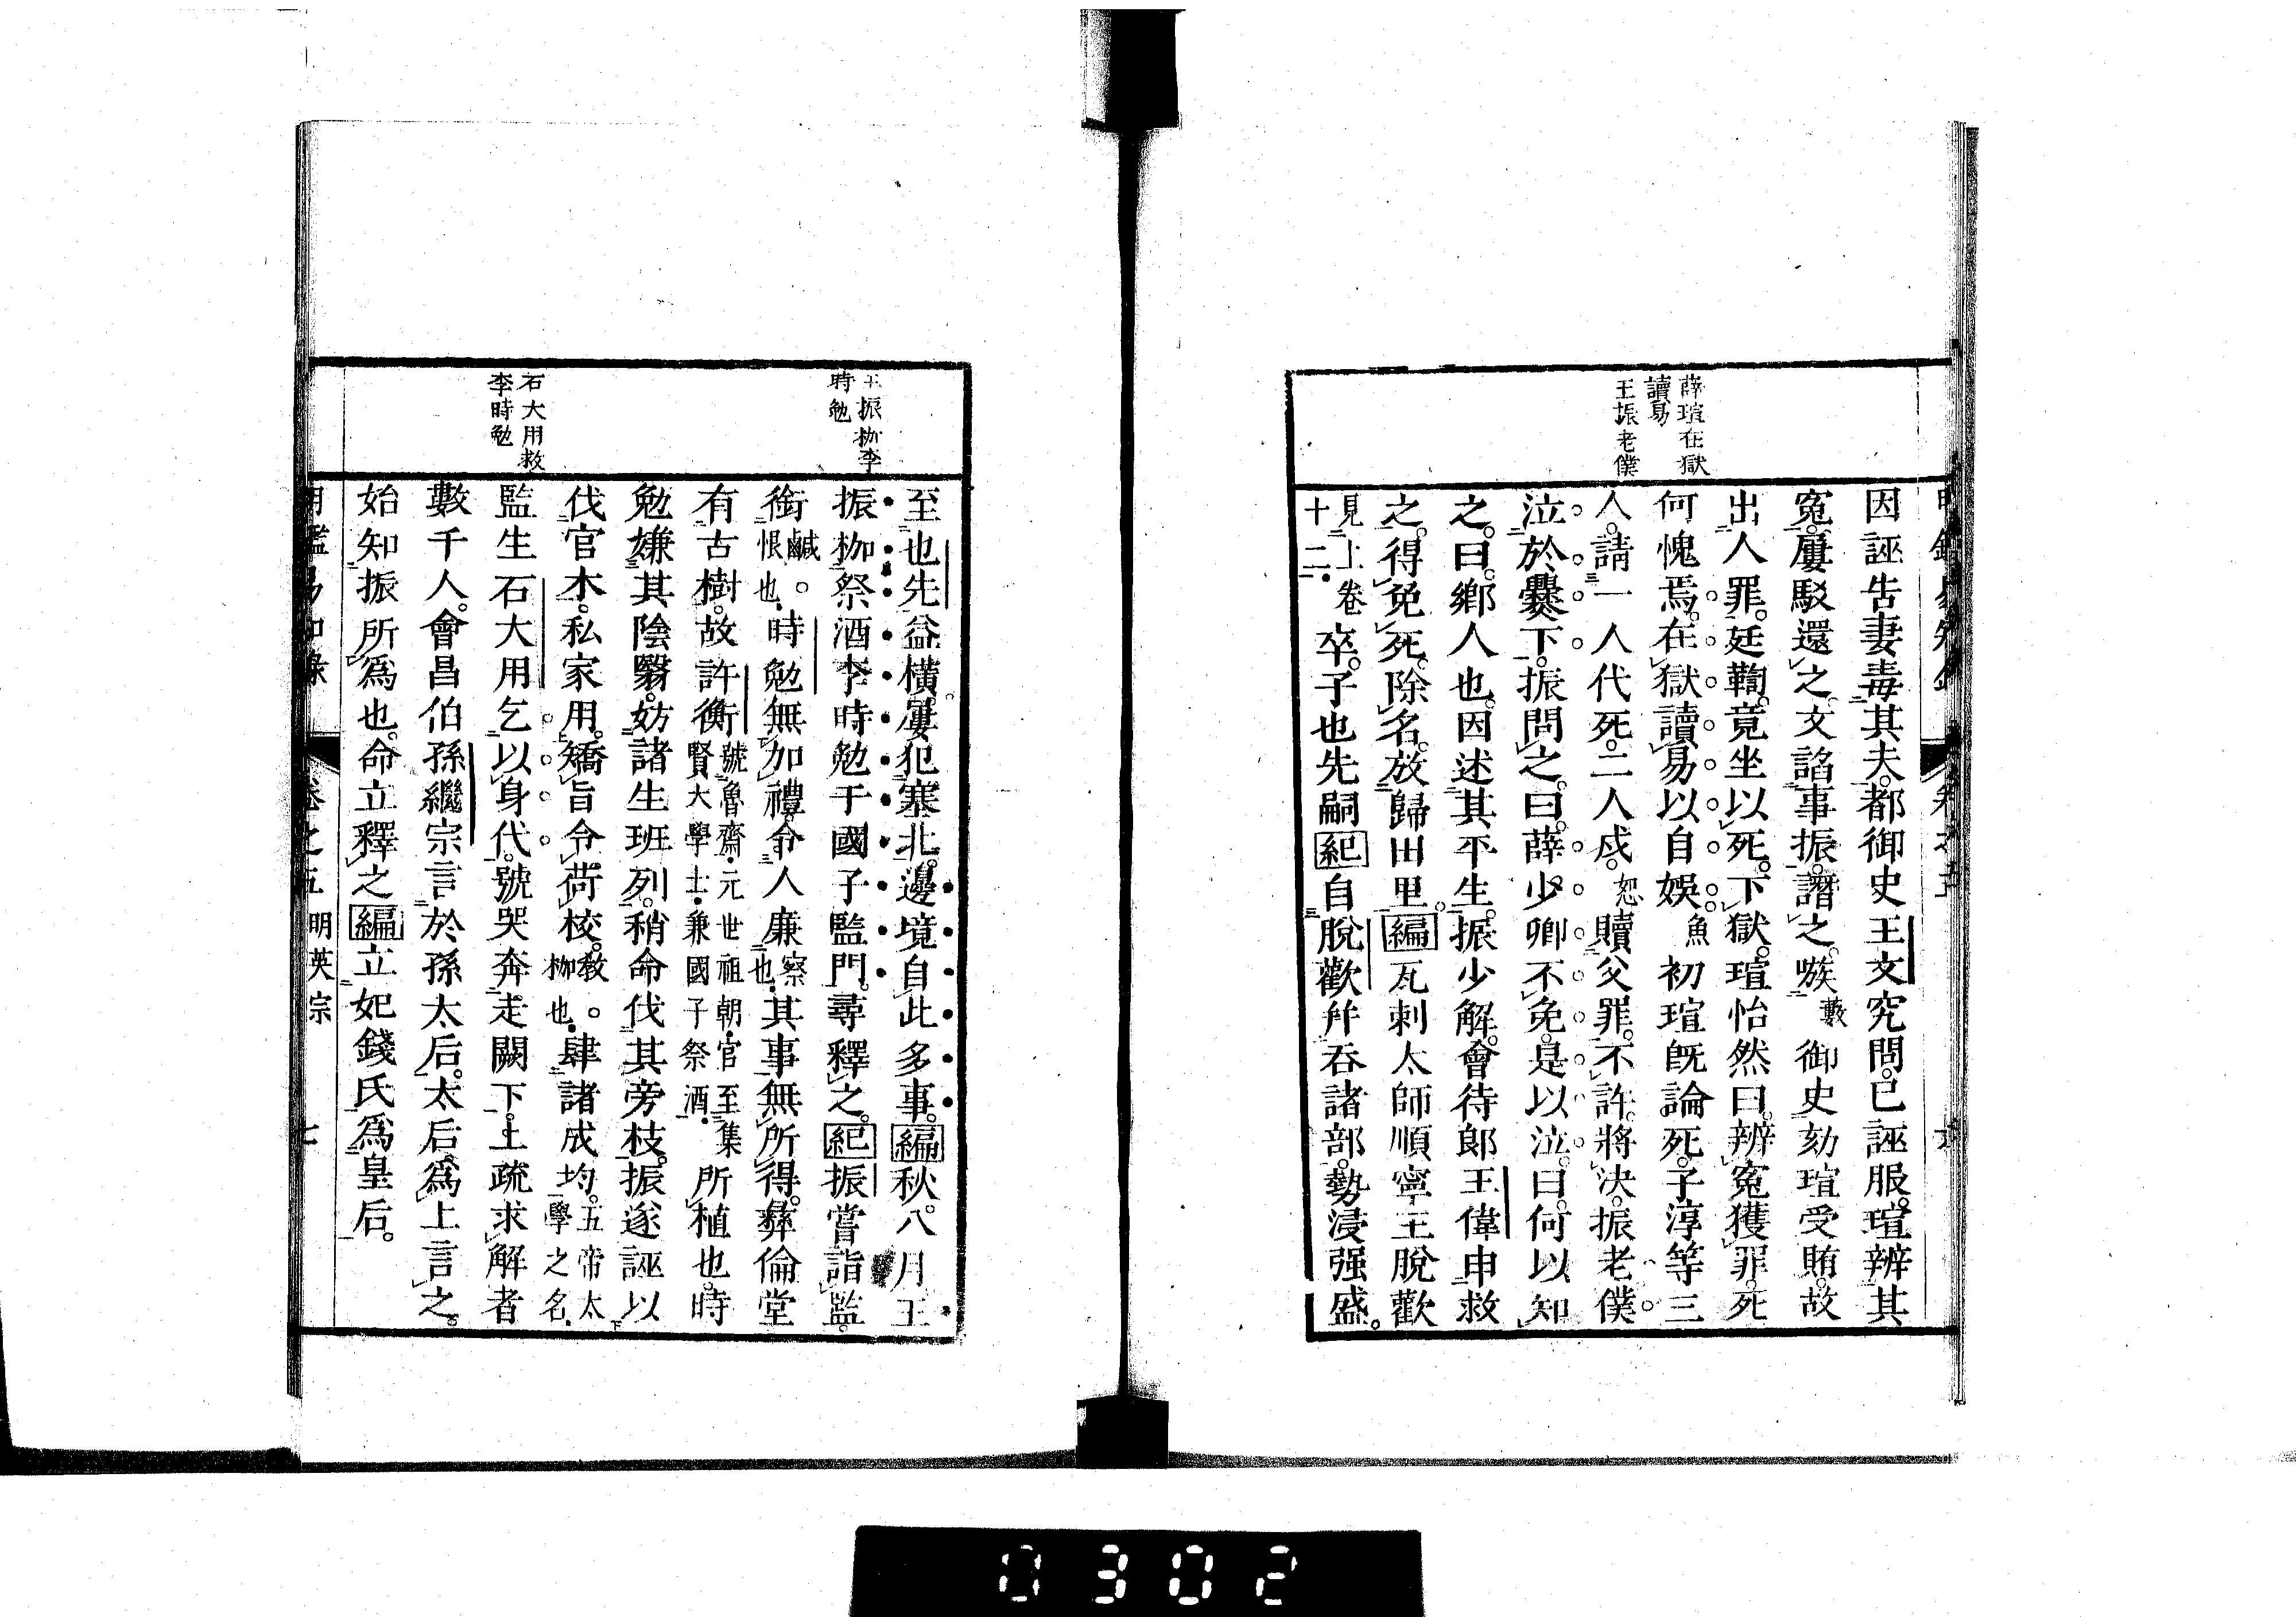 薛瑄在獄
讀易
王振老僕
因誣告妻毒其夫。都御史王文究問。已誣服。瑄辨其
寃。屢駁還之。文諂事振。譖之。嗾嗾御史劾瑄受賄。故
出人罪。廷鞫。竟坐以死。下獄。瑄怡然曰。辨寃獲罪。死
何愧焉。在獄讀易以自娛。魚初瑄旣論死。子淳等三
人。請一人代死。二人戍。恕贖父罪。不許。將決。振老僕
泣於爨下。振問之。曰。薛少卿不免。是以泣。曰。何以知
之。曰。鄉人也。因述其平生。振少解。會侍郎王偉申救
之。得免死。除名。放歸田里。編瓦剌太師順寧王脫歡
見上卷十二。卒。子也先嗣紀自脫歡幷吞諸部。勢浸强盛。
王振枷李
時勉
石大用救
李時勉
至也先益橫。屢犯塞北。邊境自此多事。編秋。八月王
振枷祭酒李時勉于國子監門。尋釋之。紀振嘗詣監。
銜鹹。恨也。時勉無加禮。令人廉察也。其事無所得。彝倫堂
有古樹。故許衡號魯齋。元世祖朝。官至集賢大學士。兼國子祭酒。所植也。時
勉嫌其陰翳。妨諸生班列。稍命伐其旁枝。振遂誣以
伐官木。私家用。矯旨令荷校。敎。枷也。肆諸成均。五帝太學之名。
監生石大用乞以身代。號哭奔走闕下。上疏求解者
數千人。會昌伯孫繼宗言於孫太后。太后。爲上言之。
始知振所爲也。命立釋之編立妃錢氏爲皇后。
明鑑易知錄 卷之五 明英宗 七